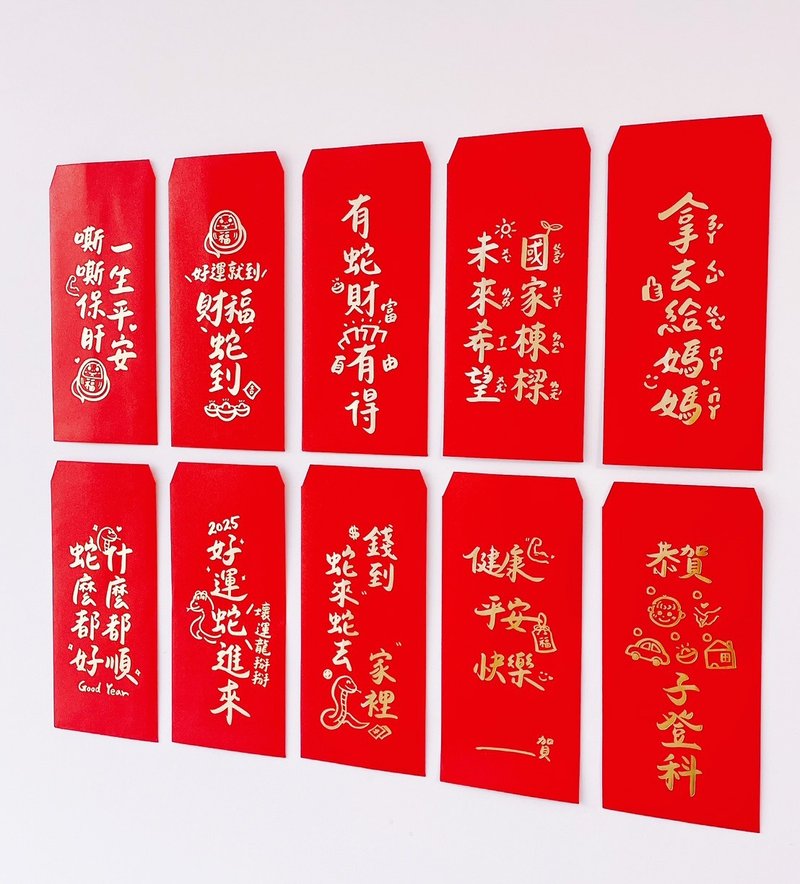 一生平安
嘶嘶保肝
福
福
好運就到
財福
蛇到
有蛇財有得
富
自由
國家棟樑
未來希望
拿去給媽媽
什麼都順
"蛇麼都"好"
Good Year
2025
"好"運"蛇進來
壞運龍掰掰
$
錢到"家裡"
蛇來蛇去
健康
平安
福
快樂
賀
恭賀
子登科